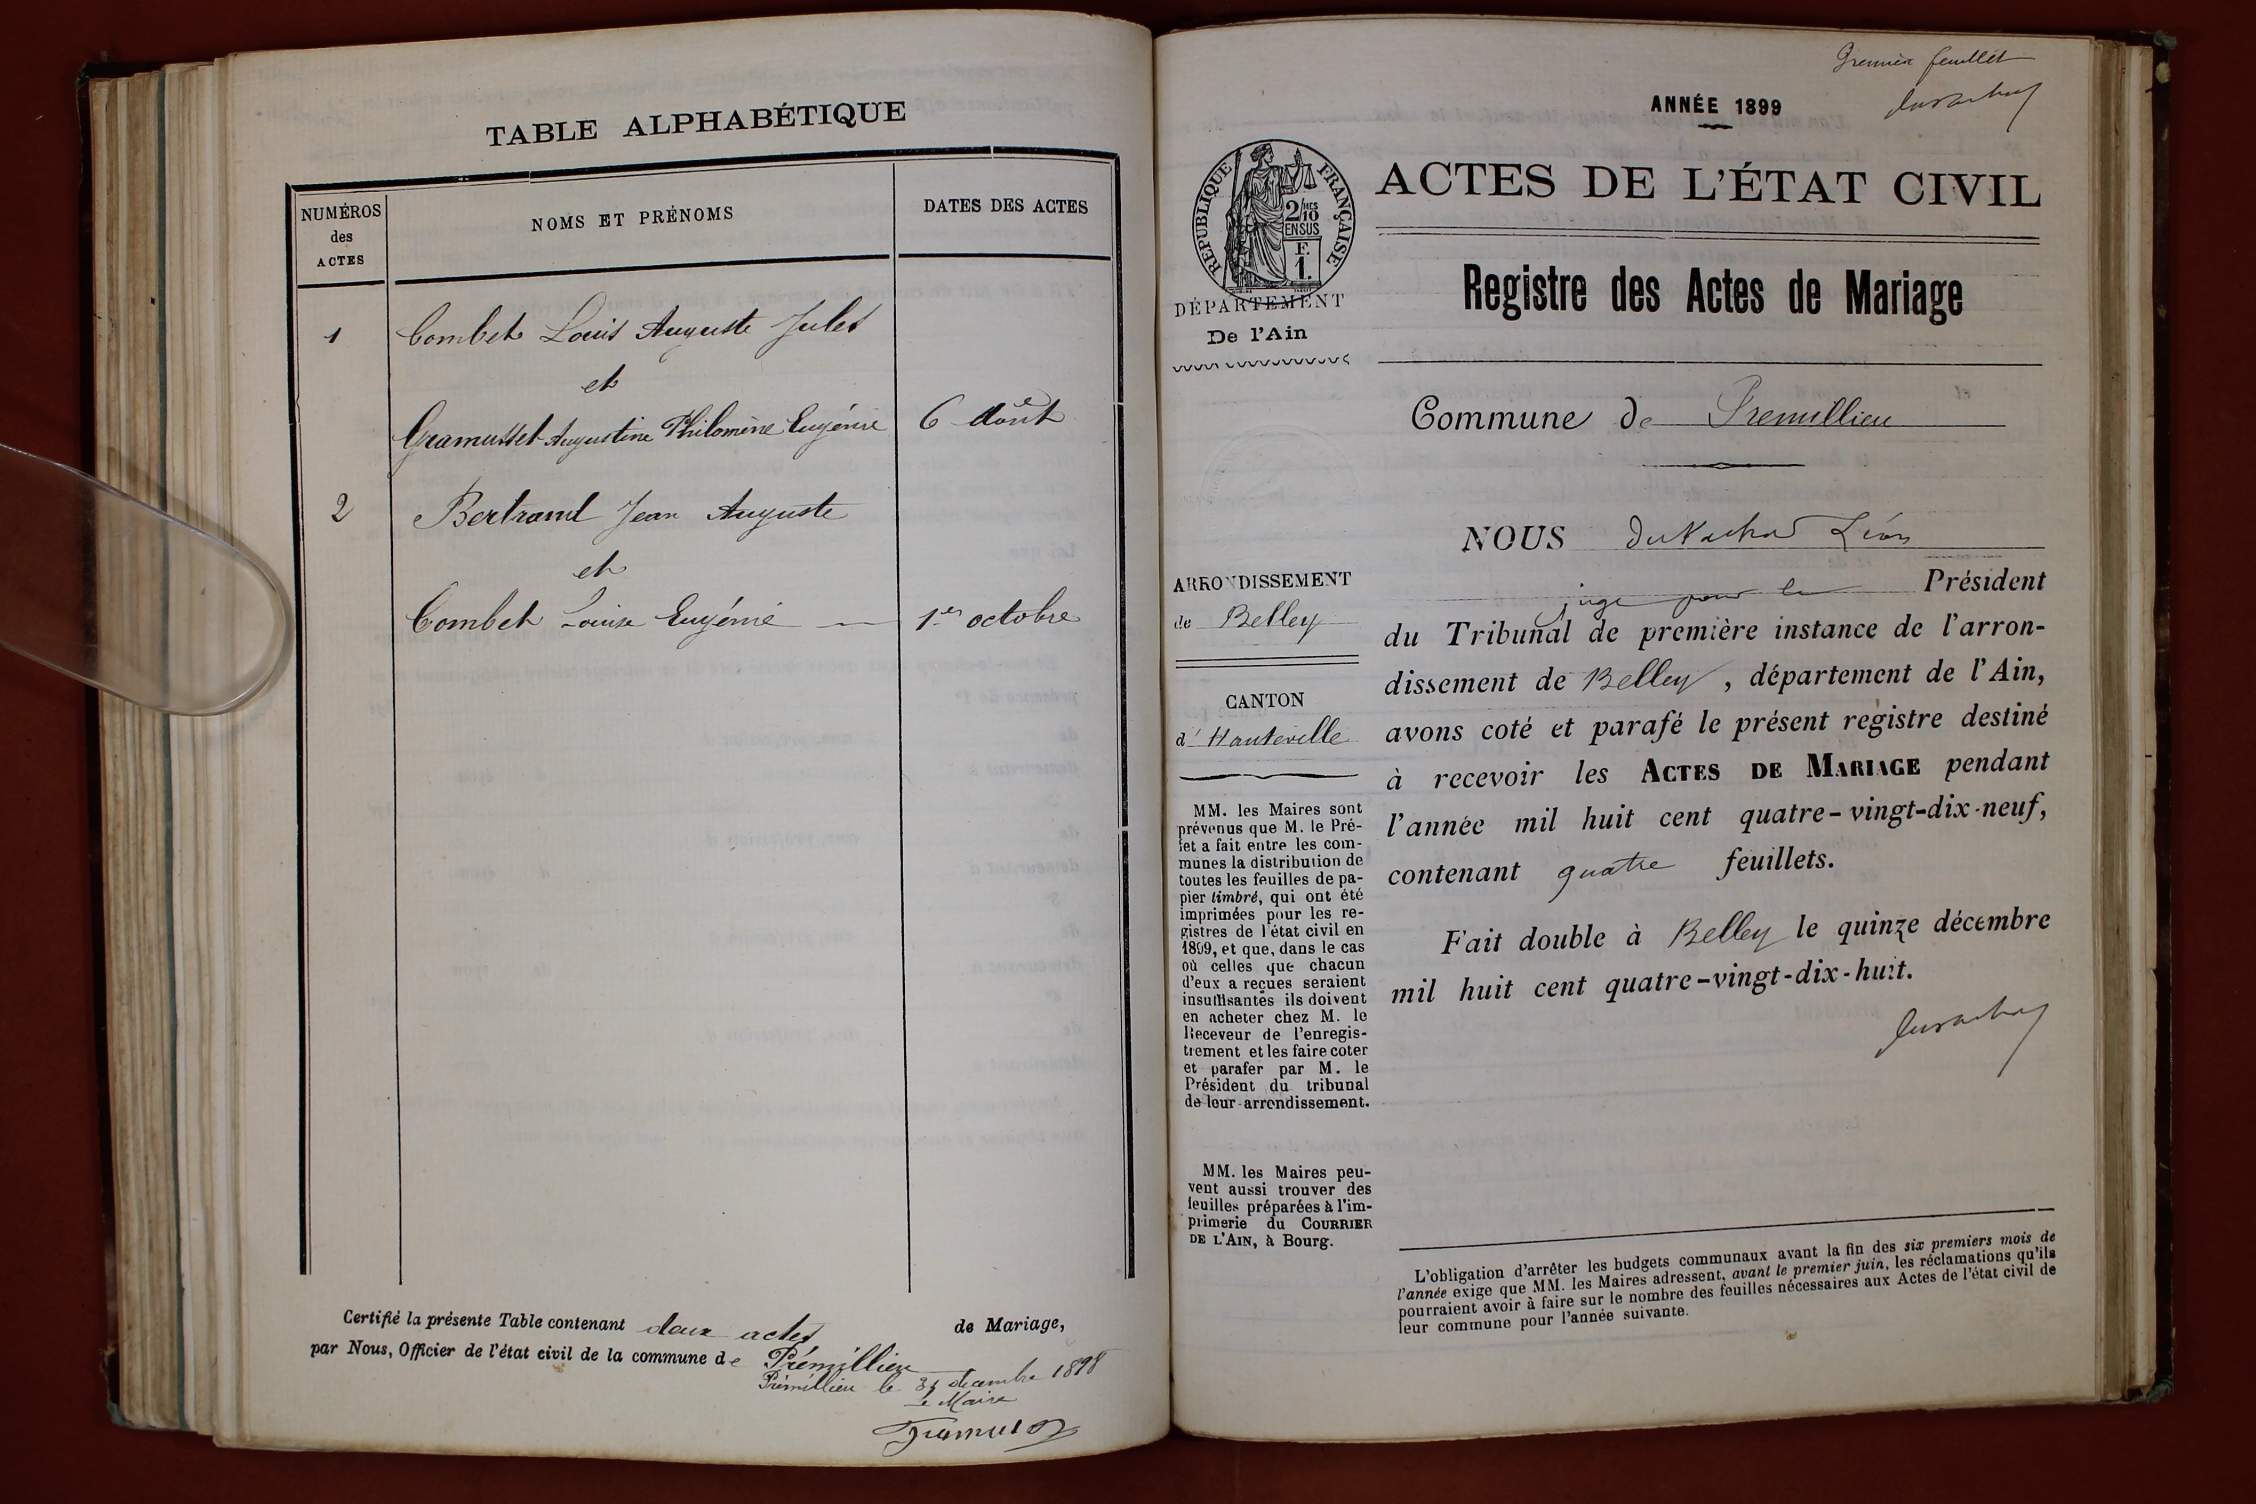 TABLE ALPHABÉTIQUE
NUMÉROS
des
ACTES
NOMS ET PRÉNOMS
DATES DES ACTES
1 Combet Louis Auguste Jules
et
Gramusset Augustine Philomène Eugénie 6 Août
2 Bertrand Jean Auguste
et
Combet Louise Eugénie 1er octobre
Certifié la présente Table contenant deux actes de Mariage,
par Nous, Officier de l'état civil de la commune de Prémillieu
Prémillieu le 31 décembre 1898
Le Maire
Premier feuillet
ANNÉE 1899
RÉPUBLIQUE FRANÇAISE
2/MES
10
EN SUS
F.
1.
ACTES DE L'ÉTAT CIVIL
DÉPARTEMENT
De l'Ain
Registre des Actes de Mariage
Commune de Premillieu
ARRONDISSEMENT
de Belley
CANTON
d'Hauteville
MM. les Maires sont
prévenus que M. le Pré-
fet a fait entre les com-
munes la distribution de
toutes les feuilles de pa-
pier timbré, qui ont été
imprimées pour les re-
gistres de l'état civil en
1899, et que, dans le cas
où celles que chacun
d'eux a reçues seraient
insuffisantes ils doivent
en acheter chez M. le
Receveur de l'enregis-
trement et les faire coter
et parafer par M. le
Président du tribunal
de leur arrondissement.
MM. les Maires peu-
vent aussi trouver des
feuilles préparées à l'im-
primerie du COURRIER
DE L'AIN, à Bourg.
NOUS Léon
juge pour le Président
du Tribunal de première instance de l'arron-
dissement de Belley, département de l'Ain,
avons coté et parafé le présent registre destiné
à recevoir les ACTES DE MARIAGE pendant
l'année mil huit cent quatre-vingt-dix-neuf,
contenant quatre feuillets.
Fait double à Belley le quinze décembre
mil huit cent quatre-vingt-dix-huit.
L'obligation d'arrêter les budgets communaux avant la fin des six premiers mois de
l'année exige que MM. les Maires adressent, avant le premier juin, les réclamations qu'ils
pourraient avoir à faire sur le nombre des feuilles nécessaires aux Actes de l'état civil de
leur commune pour l'année suivante.